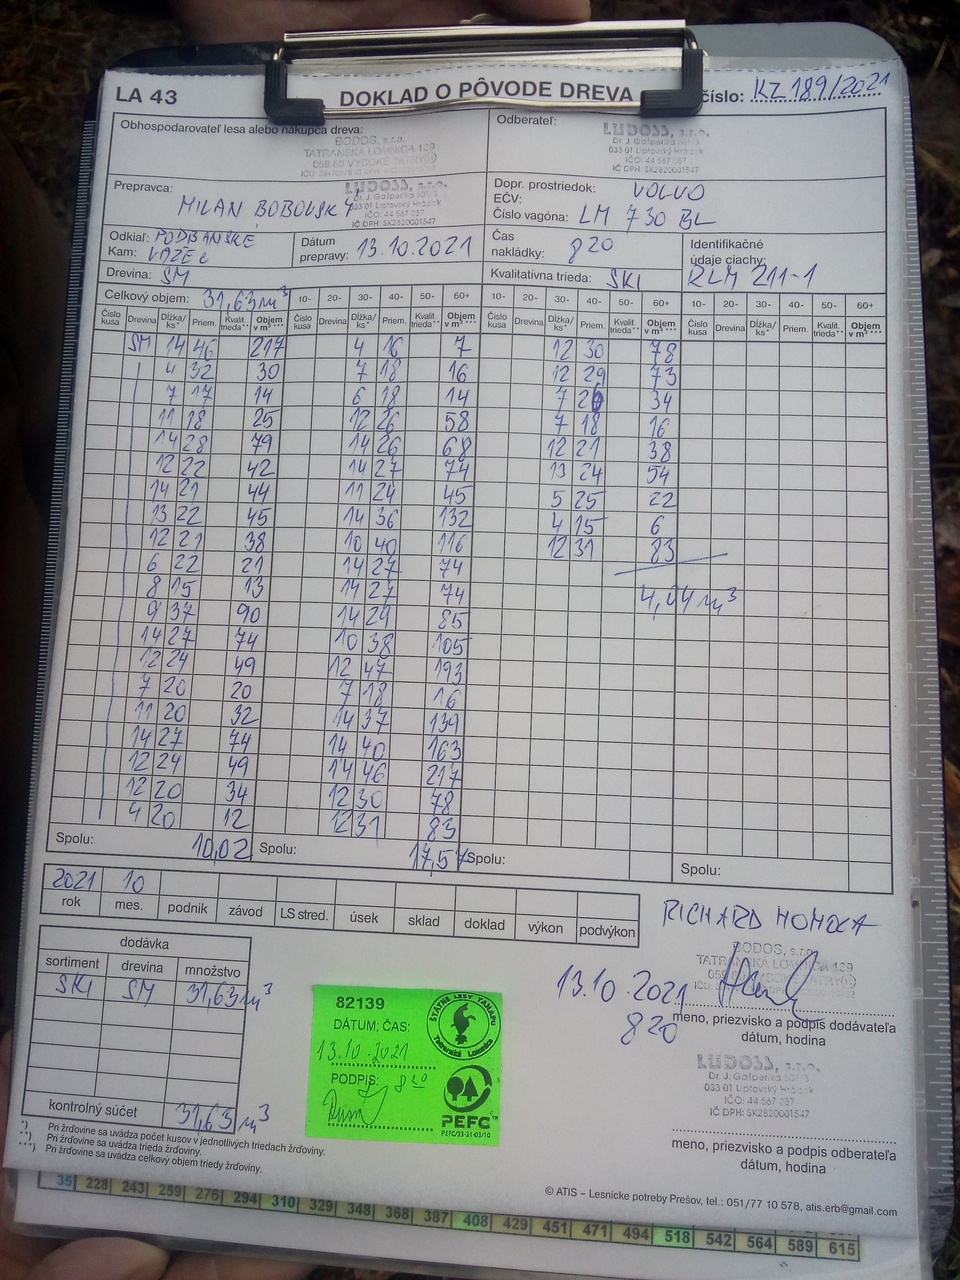 LA 43
DOKLAD O PÔVODE DREVA
číslo: KZ 189/2021
Obhospodarovateľ lesa alebo nákupca dreva:
BODOS, s.r.o.
TATRANSKÁ LOMNICA 139
059 60 VYSOKÉ TATRY
Odberateľ:
LUDOSS, s.r.o.
Dr. J. Gašperíka
033 01 Liptovský Hrádok
IČO: 44 567 037
IČ DPH: SK2820001547
Prepravca:
MILAN BOBOVSKÝ
LUDOSS, s.r.o.
Dr. J. Gašperíka
033 01 Liptovský Hrádok
IČO: 44 567 037
IČ DPH: SK2820001547
Dopr. prostriedok: VOLVO
EČV:
Číslo vagóna: LM 730 BL
Odkiaľ: PODBANSKÉ
Kam: VAŽEC
Dátum prepravy: 13.10.2021
Čas nakládky: 8 20
Identifikačné údaje ciachy:
RLM 211-1
Drevina: SM
Kvalitatívna trieda: SKI
Celkový objem: 31,63 m³ 10- 20- 30- 40- 50- 60+ 10- 20- 30- 40- 50- 60+ 10- 20- 30- 40- 50- 60+
Číslo kusa Drevina Dĺžka/ks* Priem. Kvalit. trieda** Objem v m³*** Číslo kusa Drevina Dĺžka/ks* Priem. Kvalit. trieda** Objem v m³*** Číslo kusa Drevina Dĺžka/ks* Priem. Kvalit. trieda** Objem v m³*** Číslo kusa Drevina Dĺžka/ks* Priem. Kvalit. trieda** Objem v m³***
SM 14 46 217 4 16 7 12 30 78
4 32 30 7 18 16 12 29 73
7 17 14 6 18 14 7 26 34
11 18 25 12 26 58 7 18 16
14 28 79 14 26 68 12 21 38
12 22 42 14 27 74 13 24 54
14 21 44 11 24 45 5 25 22
13 22 45 14 36 132 4 15 6
12 21 38 10 40 116 12 31 83
6 22 21 14 27 74
8 15 13 14 27 74 4,04 m³
9 37 90 14 29 85
14 27 74 10 38 105
12 24 49 12 47 193
7 20 20 7 18 16
11 20 32 14 37 139
14 27 74 14 40 163
12 24 49 14 46 217
12 20 34 12 30 78
4 20 12 12 31 83
Spolu: 10,02 Spolu: 17,57 Spolu: Spolu:
2021 10
rok mes. podnik závod LS stred. úsek sklad doklad výkon podvýkon
dodávka
sortiment drevina množstvo
SKI SM 31,63 m³
kontrolný súčet 31,63 m³
82139
DÁTUM; ČAS:
13.10.2021
PODPIS: 8 20
ŠTÁTNE LESY TANAPU
Tatranská Lomnica
PEFC™
PEFC/23-21-03/10
13.10.2021
8 20
RICHARD
BODOS, s.r.o.
TATRANSKÁ LOMNICA 139
meno, priezvisko a podpis dodávateľa
dátum, hodina
LUDOSS, s.r.o.
Dr. J. Gašperíka
033 01 Liptovský Hrádok
IČO: 44 567 037
IČ DPH: SK2820001547
meno, priezvisko a podpis odberateľa
dátum, hodina
*) Pri žrďovine sa uvádza počet kusov v jednotlivých triedach žrďoviny.
**) Pri žrďovine sa uvádza trieda žrďoviny.
***) Pri žrďovine sa uvádza celkový objem triedy žrďoviny.
© ATIS – Lesnícke potreby Prešov, tel.: 051/77 10 578, atis.erb@gmail.com
35 228 243 259 276 294 310 329 348 368 387 408 429 451 471 494 518 542 564 589 615